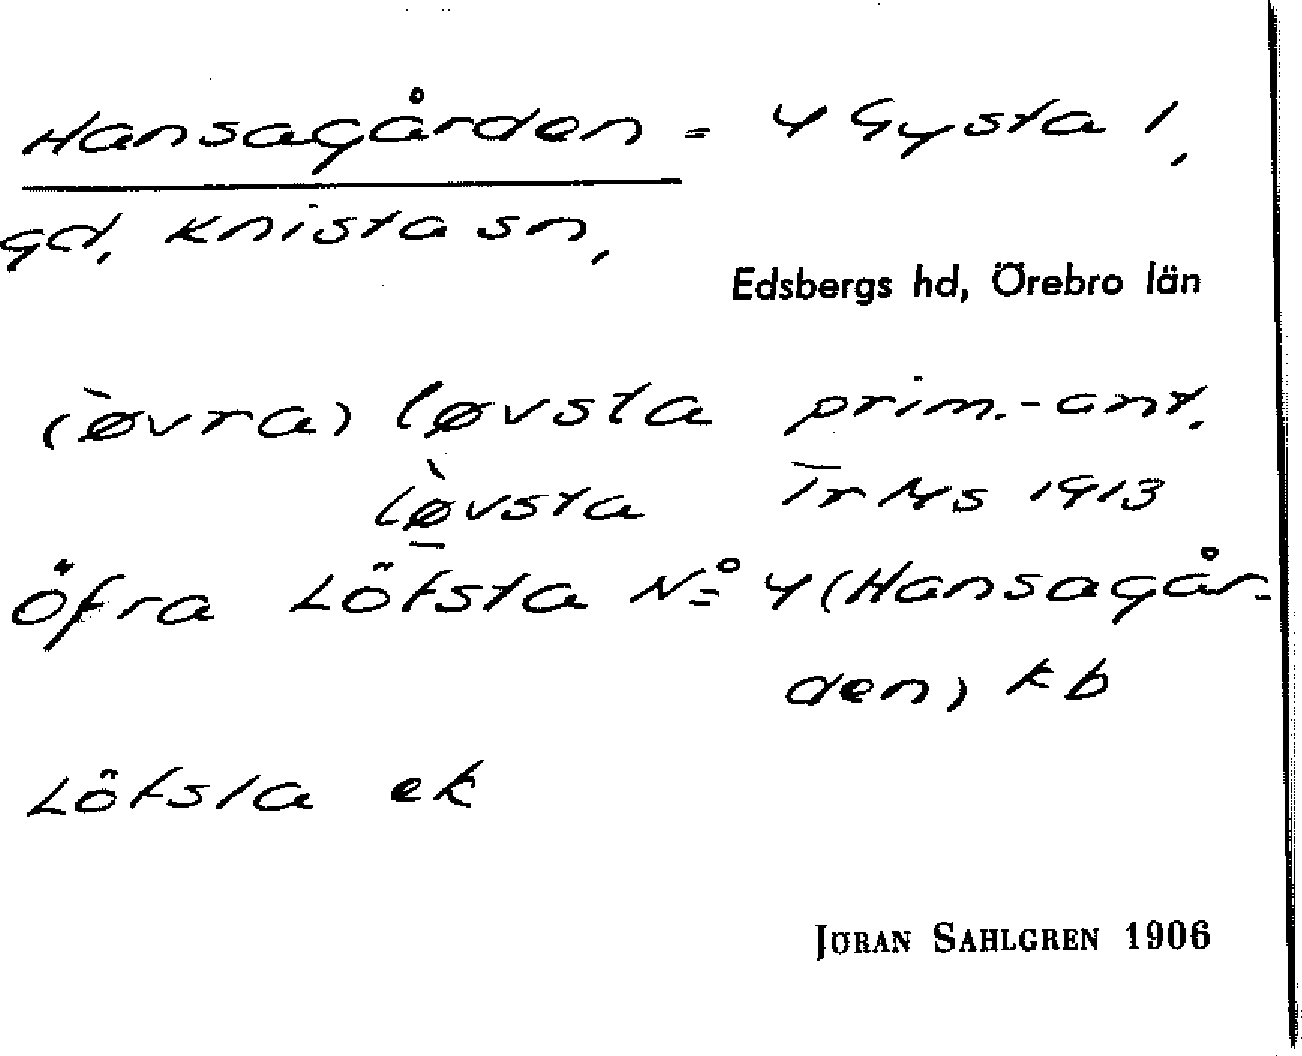 Hansagården = 4 Gysta 1,
gd, Knista sn,
Edsbergs hd, Örebro län
(ὸøvra) løvsta prim.-ant.
lø̀vsta Tr Ms 1913
Öfra Löfsta No 4 (Hansagår-
den) kb
Löfsta ek
JÖRAN SAHLGREN 1906